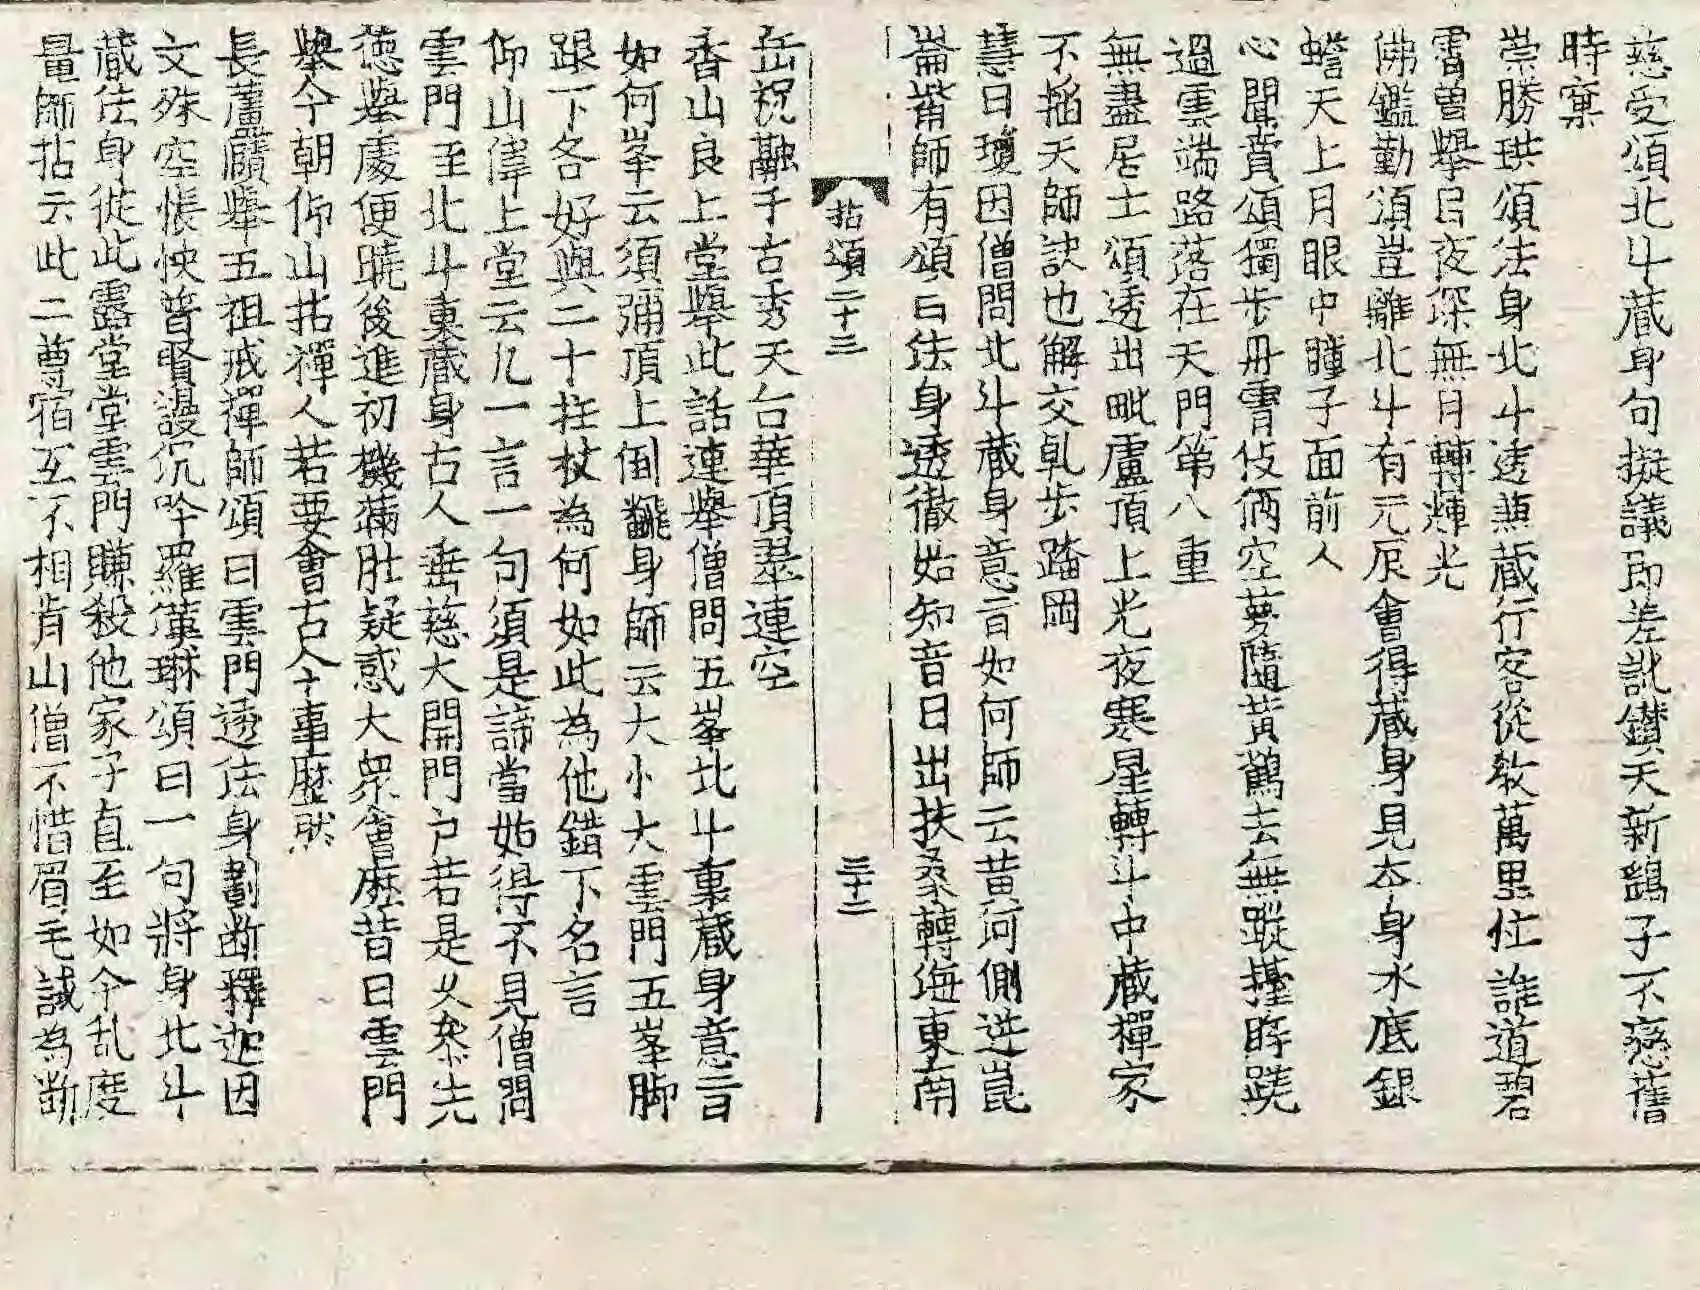 慈受頌北斗蔵身句擬議即差訛鑚天新鷂子不戀舊
時窠
崇勝珙頌法身北斗透兼蔵行客從教萬思忙誰道碧
霄曽擧目夜深無月轉輝光
佛鑑勤頌豈離北斗有元辰會得蔵身見夲身水底銀
蟾天上月眼中瞳子面前人
心聞賁頌獨步丹霄伎倆空夢隨黃鶴去無蹤擡眸䟦
過雲端路落在天門第八重
無盡居士頌透出毗盧頂上光夜寒星轉斗中蔵禪家
不搯天師訣也解交乹步踏岡
慧日瓊因僧問北斗蔵身意旨如何師云黃河側逆崑
崙觜師有頌曰法身透徹始知音日出扶桑轉海東南
岳祝融手古秀天台華頂翠連空
香山良上堂擧此話連擧僧問五峯北斗裏蔵身意旨
如何峯云須彌頂上倒飜身師云大小大雲門五峯脚
跟下各好與二十拄杖為何如此為他錯下名言
仰山偉上堂云凢一言一句須是諦當始得不見僧問
雲門至北斗裏蔵身古人垂慈大開門户若是乆叅先
德擧處便曉後進初機蒲肚疑惑大衆會麽昔日雲門
擧今朝仰山拈禪人若要會古今事歴然
長蘆賾擧五祖戒禪師頌曰雲門透法身劃断釋迦因
文殊空悵怏普賢謾沉吟羅漢琳頌曰一句將身北斗
蔵法身從此露堂堂雲門賺殺他家子直至如今乱度
量師拈云此二尊宿互不相肯山僧不惜眉毛試為断
拈頌二十三
三十二